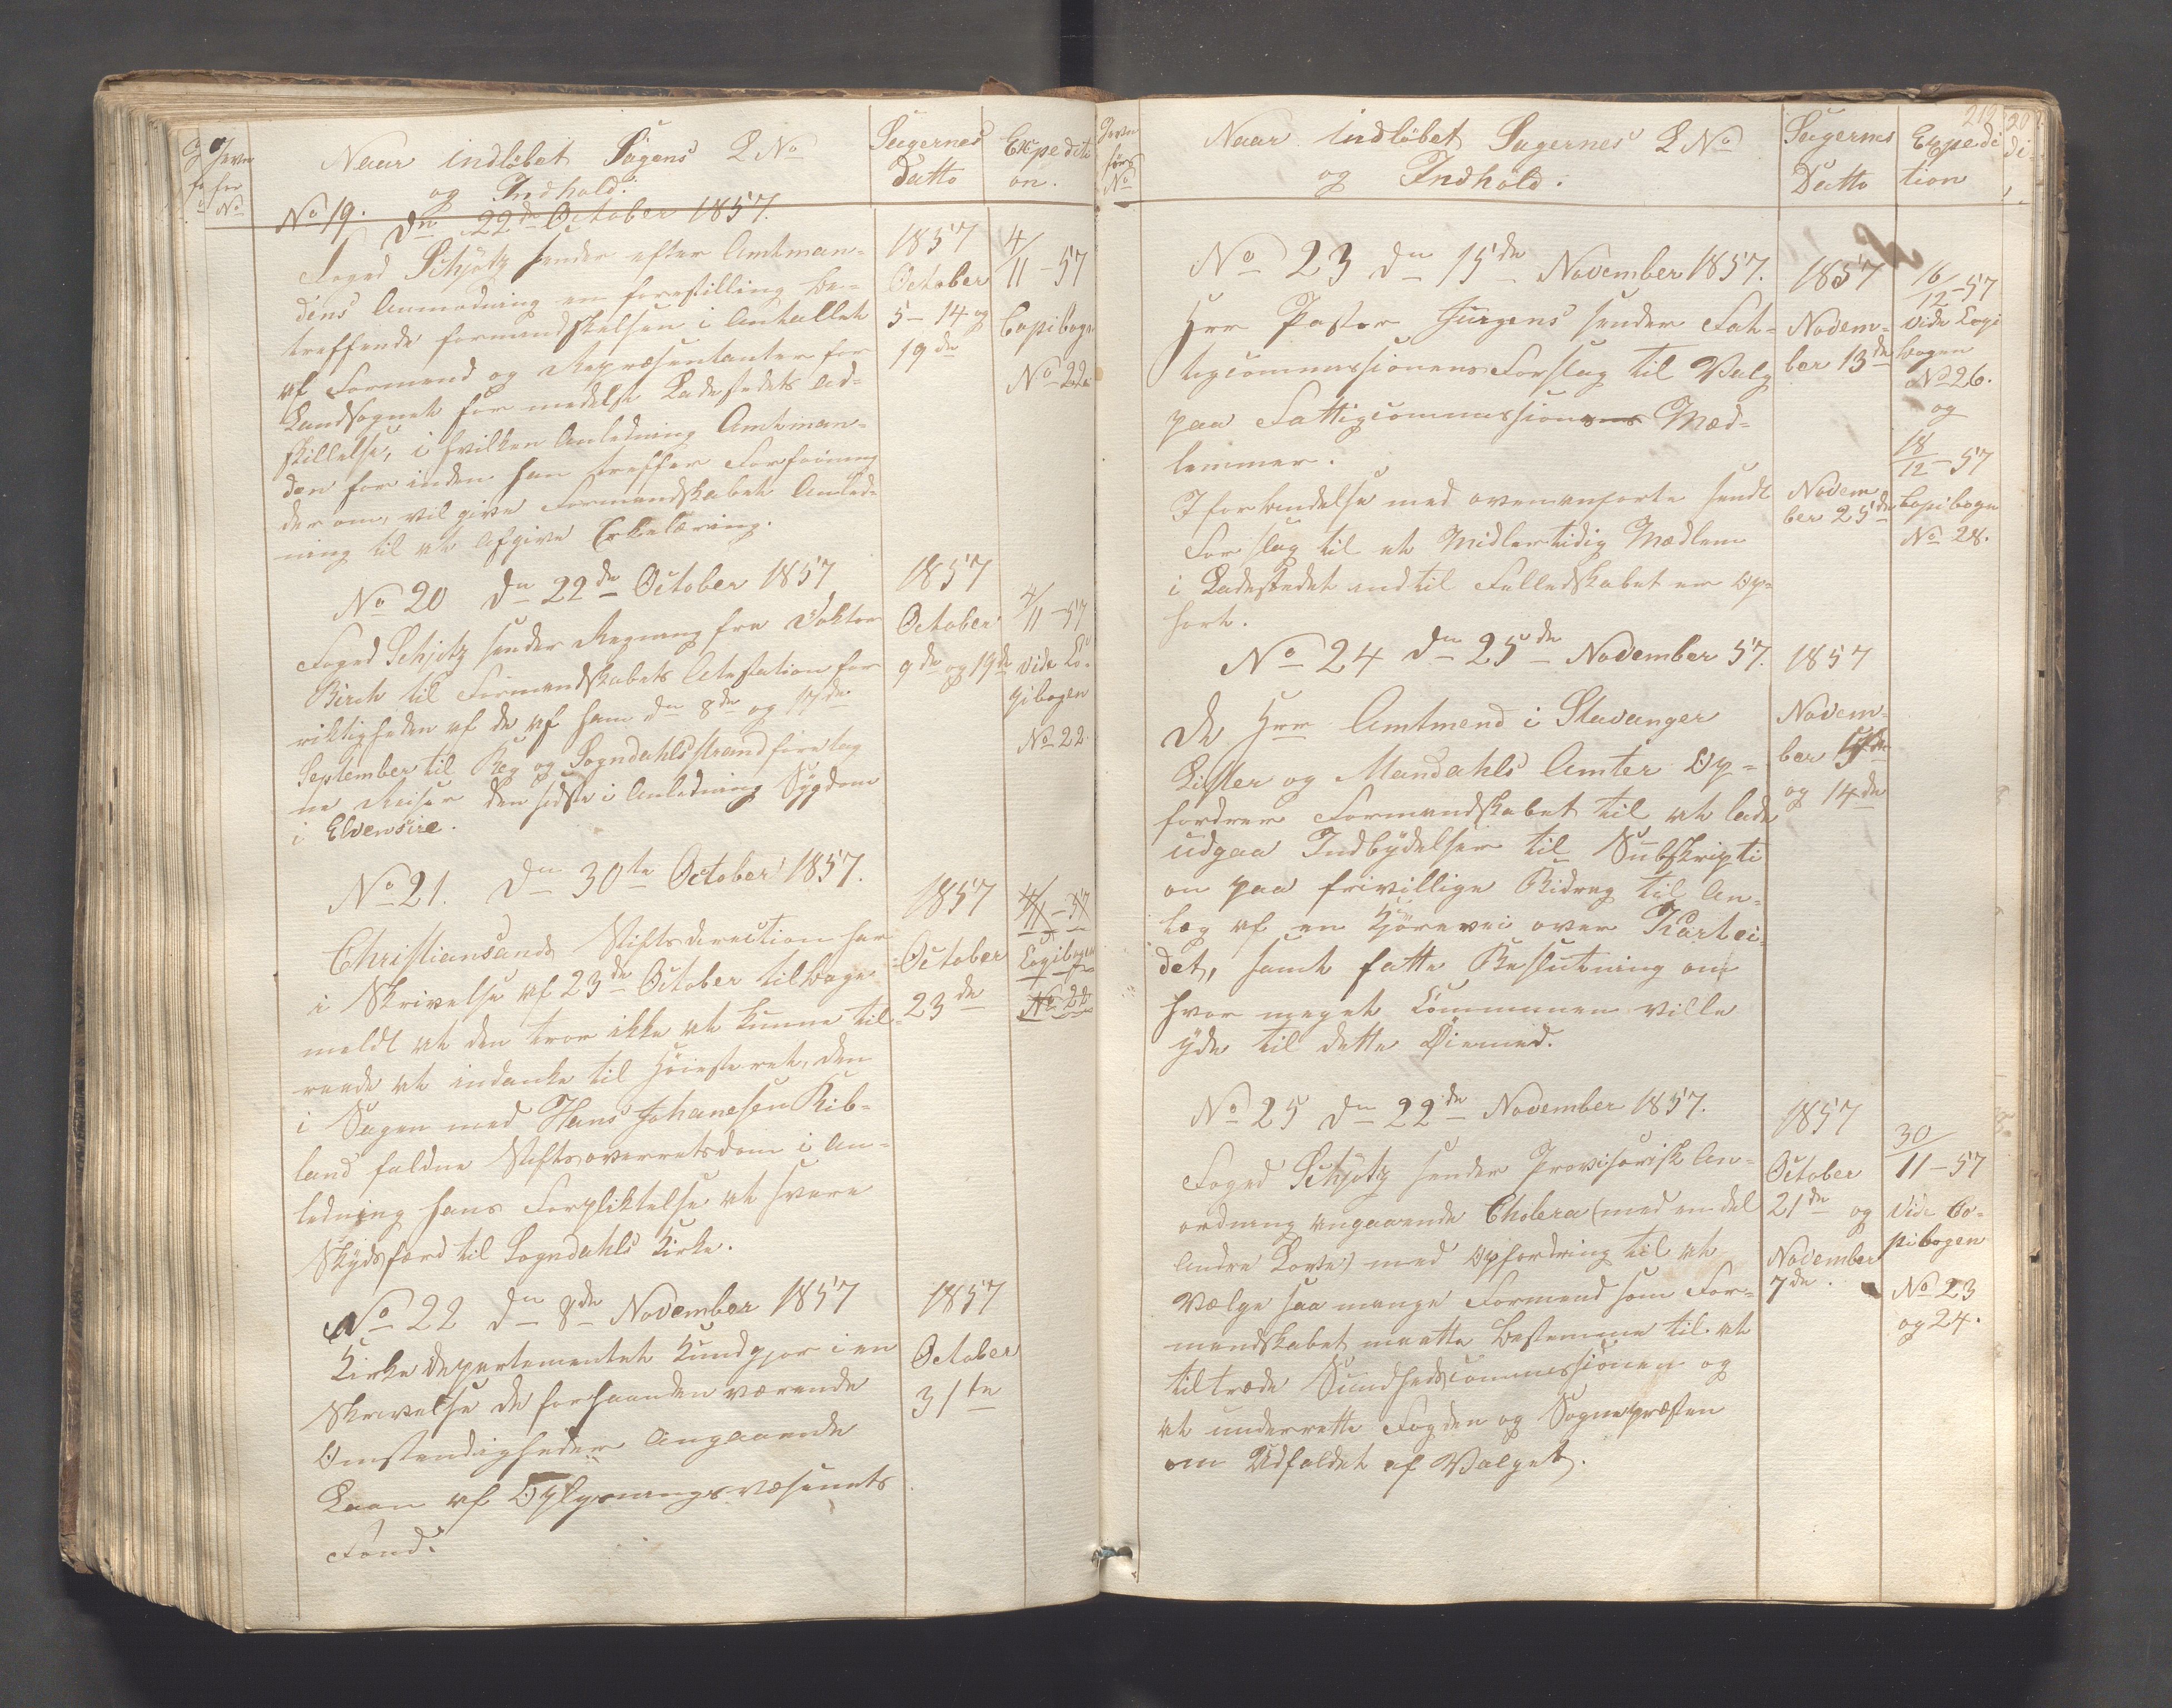 Naar indløbet Sagens L No
og Indhold.
Sagernes
Datto
Expediti
on.
No 19. Dn 22de October 1857.
Foged Schjøtz sender efter Amtman-
dens Anmodning en forestilling be-
treffende formindskelsen i Antallet
af Formend og Repræsentanter for
Landsognet formedelst Ladestedets Ad-
skillelse, i hvilken Anledning Amtman-
den forinden han treffer Forføining
derom, vil give Formandskabet Anled-
ning til at afgive Erkelæring.
1857
October
5 - 14 og
19de
4/11 - 57
Copibogen
No 22
No 20 Dn 22de October 1857
Foged Schjøtz sender Regning fra Doktor
Birch til Formandskabets Atestation for
rigtigheden af de af ham dn 8de og 17de
September til Reg og Sogndahlsstrand foretag
ne Reiser den sidste i Anledning Sygdom
i Elvensire.
1857
October
9de og 19de
4/11 - 57
vide Co-
pibogen
No 22.
No 21. Dn 30te October 1857.
Christiansands Stiftsdirection har
i Skrivelse af 23de October tilbage-
meldt at den tror ikke at kunne til-
raade at indanke til Høiesteret, den
i Sagen med Hans Johanesen Rib-
land faldne Stiftsoverretsdom i An-
ledning hans Forpliktelse at svare
Skydsferd til Sogndahls Kirke.
1857
October
23de
4/11 - 57
Copibogen
No 22
No 22 Dn 8de November 1857
Kirke Departementet Kundgjør i en
Skrivelse de forhaanden værende
Omstendigheder angaaende
Laan af Oplysningsvæsenets
Fond.
1857
October
31te
Naar indløbet Sagernes L No
og Indhold.
Sagernes
Datto
Expedi
tion
No 23 dn 15de November 1857.
Hrr Pastor Jürgens sender Fat-
tigcommissionens Forslag til Valg
paa Fattigcommissionens Med-
lemmer.
I forbindelse med ovenanførte sendt
Forslag til et Midlertidig Medlem
i Ladestedet indtil Felledskabet er Op-
hørt.
1857
Novem-
ber 13de
Novem
ber 25de
16/12 - 57
vide Copi
bogen
No 26.
og
18/12 - 57
Copibogen
No 28.
No 24 dn 25de November 57.
De Hrr Amtmend i Stavanger
Lister og Mandahls Amter Op-
fordrer Formandskabet til at lade
udgaa Indbydelser til Subskripti
on paa frivillige Bidrag til An-
læg af en Kjørevei over Tiartei-
det, samt fatte Beslutning om
hvor meget Communen ville
yde til dette Øiemed.
1857
Novem-
ber
og 14de
No 25 dn 22de November 1857.
Foged Schjøtz sender Provisorisk An-
ordning angaaende Cholera (med en del
andre Love) med Opfordring til at
vælge saa mange Formend som For-
mandskabet maatte bestemme til at
tiltræde Sundhedscommissionen og
at underrette Fogden og Sognepræsten
om Udfaldet af Valget.
1857
October
21de og
November
7de.
30/11 - 57
vide Co-
pibogen
No 23
og 24.